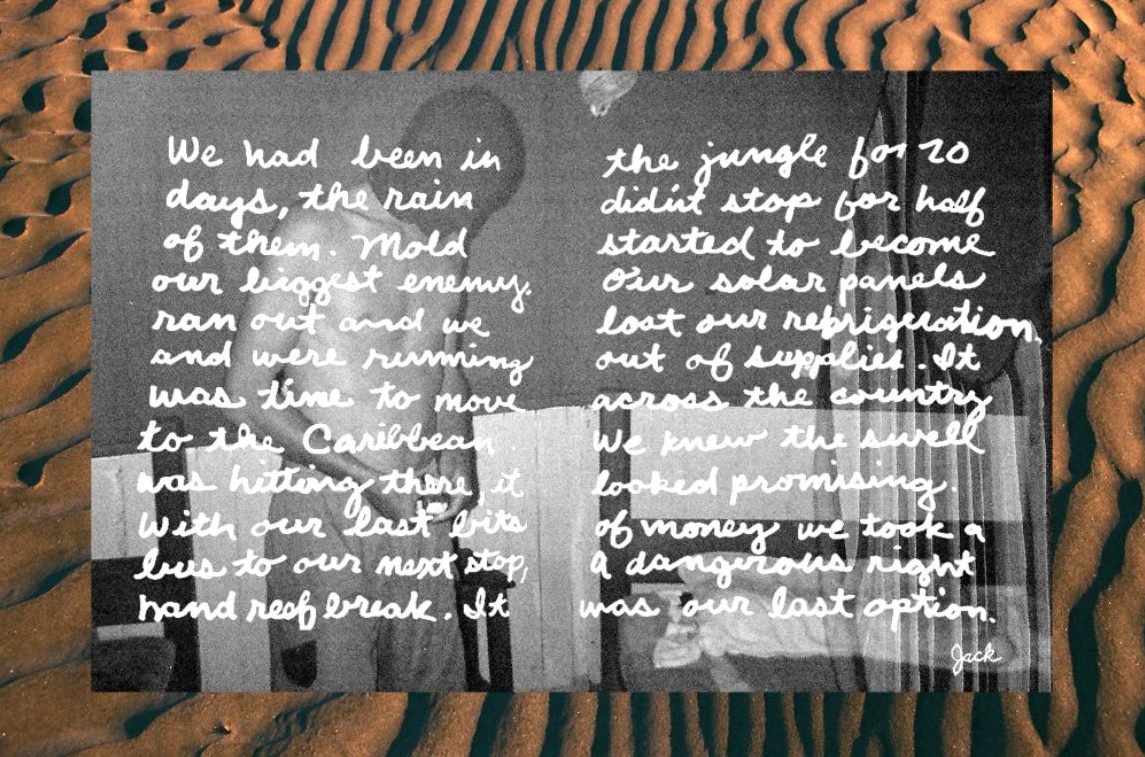 We had been in the jungle for 20
days, the rain didn't stop for half
of them. Mold started to become
our biggest enemy. Our solar panels
ran out and we lost our refrigeration,
and were running out of supplies. It
was time to move across the country
to the Caribbean. We knew the swell
was hitting there, it looked promising.
With our last bits of money we took a
bus to our next stop, A dangerous right
hand reef break. It was our last option.
Jack